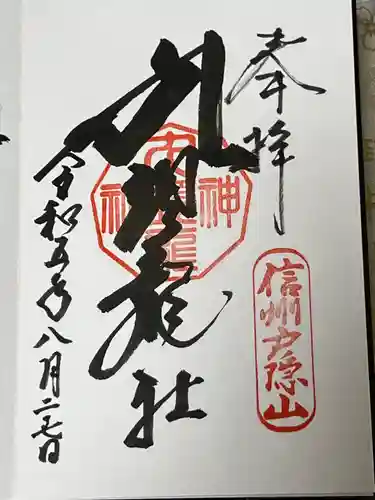 奉拝
信州戸隠山
九頭龍社
九頭龍神社
令和五年八月二七日